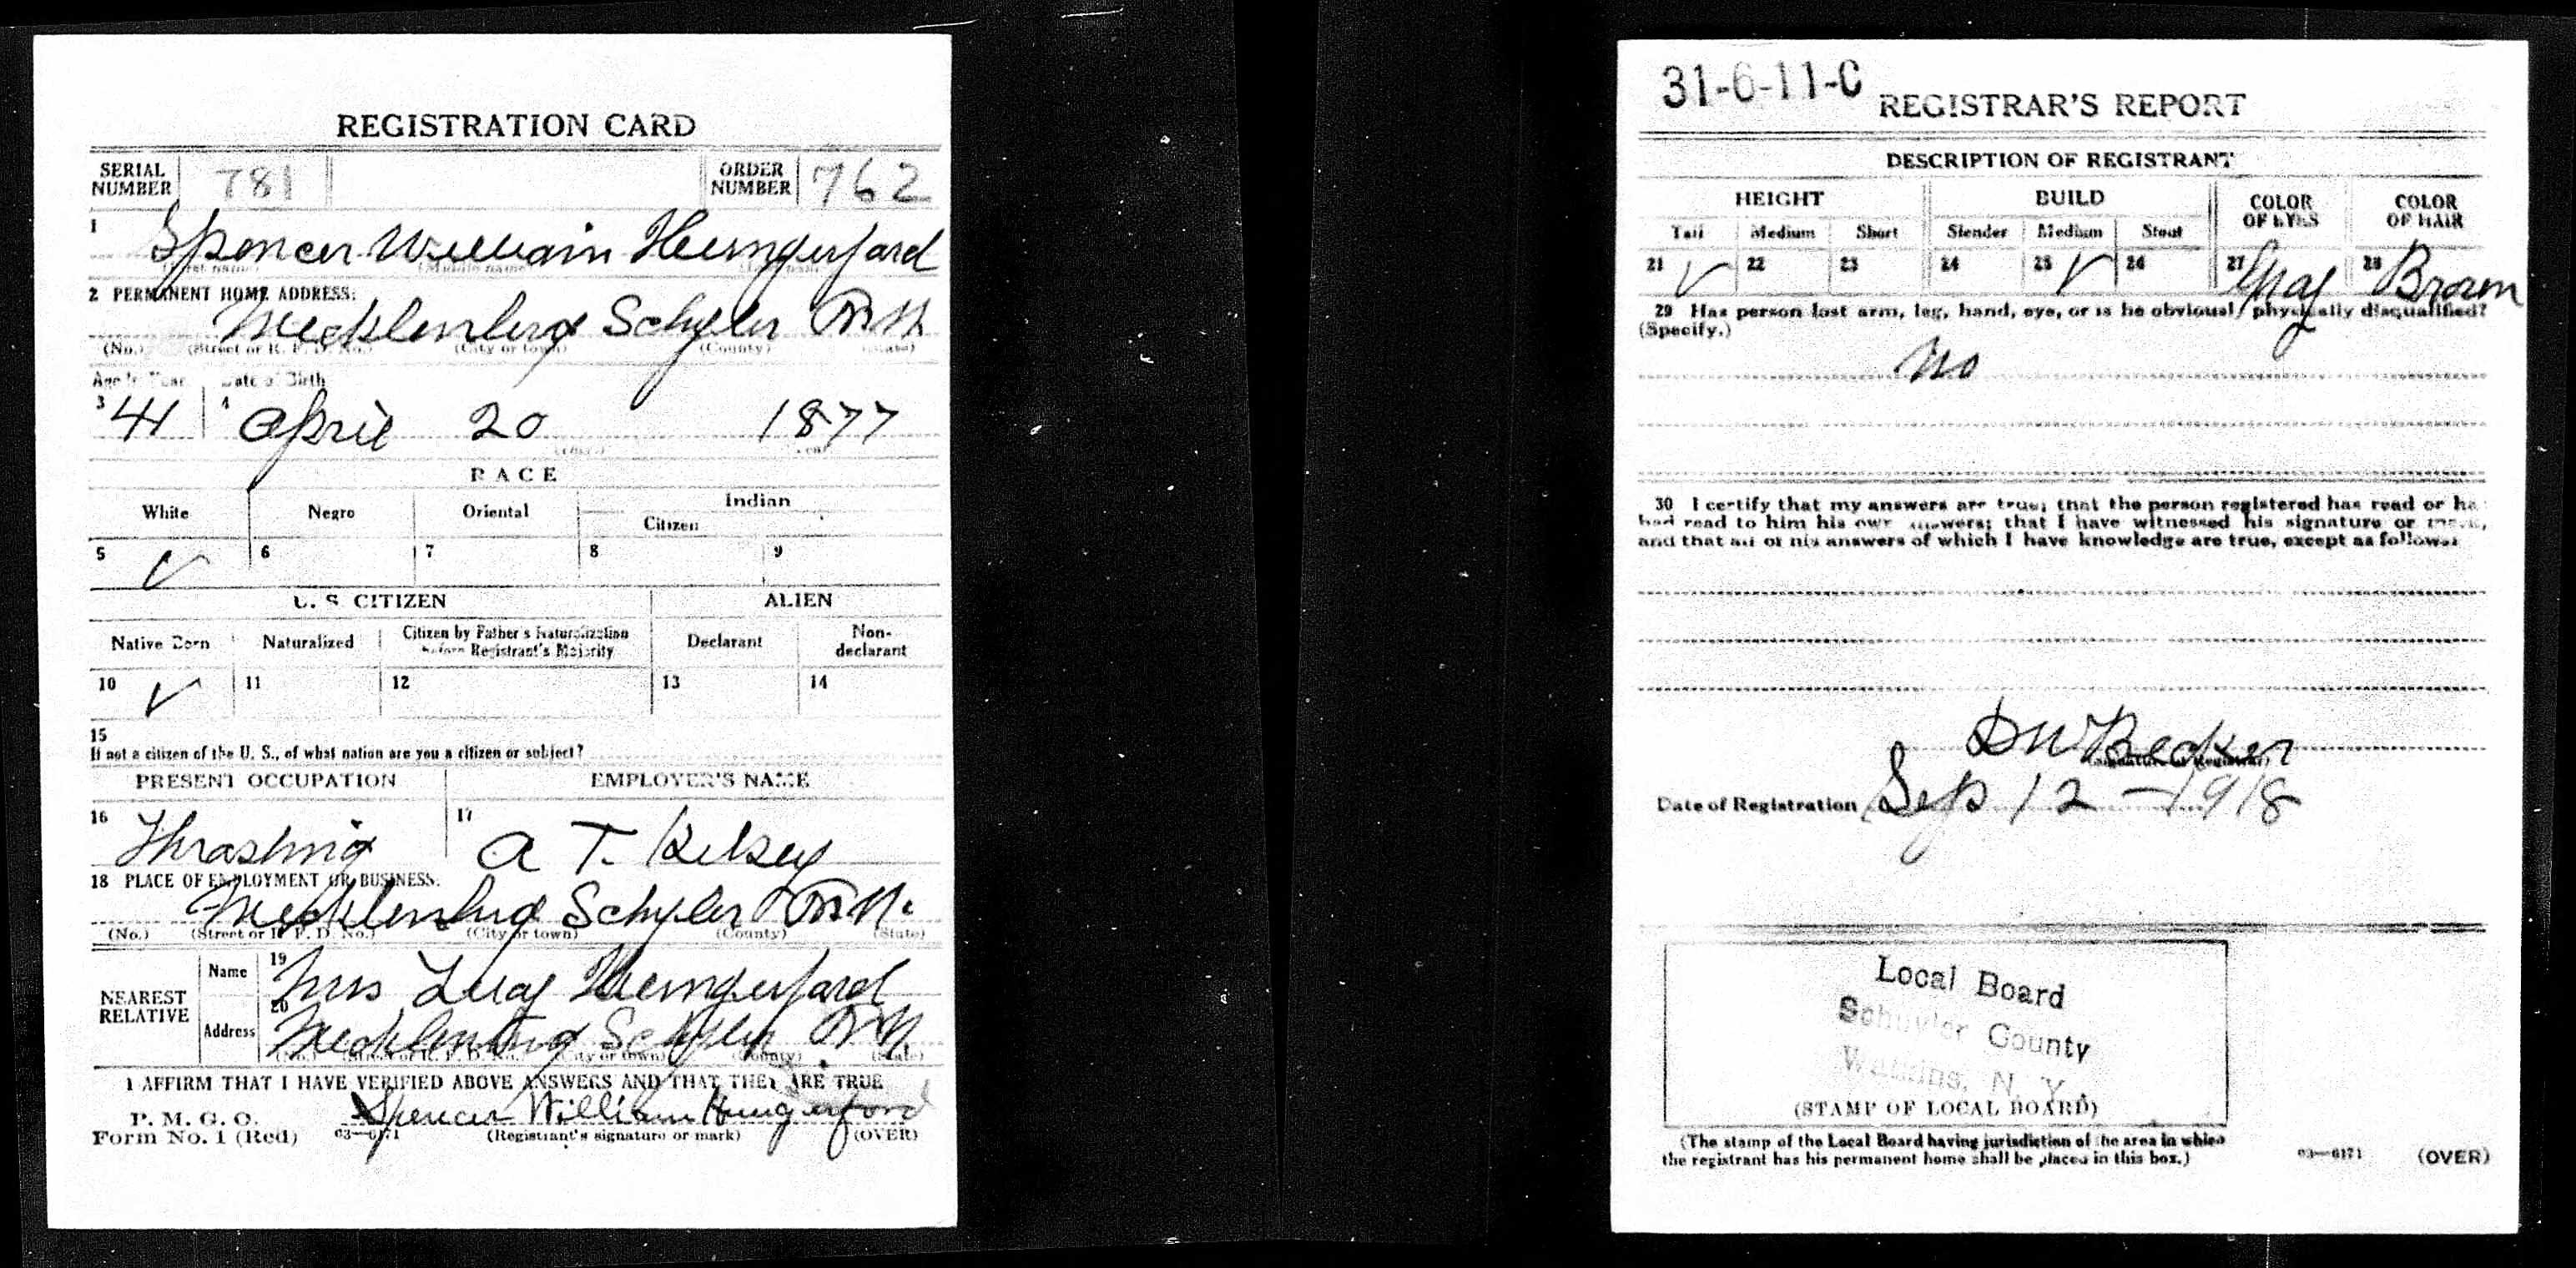 REGISTRATION CARD
SERIAL NUMBER 781 ORDER NUMBER 762
1 Spencer William Hungerford
(First name) (Middle name) (Last name)
2 PERMANENT HOME ADDRESS:
Mecklenburg Schyler N.Y.
(No.) (Street or R. F. D. No.) (City or town) (County) (State)
Age in Years Date of Birth
3 41 4 April 20 1877
(Day.) (Year.)
RACE
White Negro Oriental Indian
Citizen
5 ✓ 6 7 8 9
U. S. CITIZEN ALIEN
Native Born Naturalized Citizen by Father's Naturalization before Registrant's Majority Declarant Non-declarant
10 ✓ 11 12 13 14
15
If not a citizen of the U. S., of what nation are you a citizen or subject?
PRESENT OCCUPATION EMPLOYER'S NAME
16 Thrashing 17 A T. Kelsey
18 PLACE OF EMPLOYMENT OR BUSINESS:
Mecklenburg Schyler N.Y.
(No.) (Street or R. F. D. No.) (City or town) (County) (State)
NEAREST RELATIVE
Name 19 Mrs Lucy Hungerford
Address 20 Mecklenburg Schyler N.Y.
(No.) (Street or R. F. D. No.) (City or town) (County) (State)
I AFFIRM THAT I HAVE VERIFIED ABOVE ANSWERS AND THAT THEY ARE TRUE
P. M. G. O.
Form No. 1 (Red) 03—6171 Spencer William Hungerford
(Registrant's signature or mark) (OVER)
31-6-11-C
REGISTRAR'S REPORT
DESCRIPTION OF REGISTRANT
HEIGHT BUILD COLOR OF EYES COLOR OF HAIR
Tall Medium Short Slender Medium Stout
21 ✓ 22 23 24 25 ✓ 26 27 Gray 28 Brown
29 Has person lost arm, leg, hand, eye, or is he obviously physically disqualified?
(Specify.)
No
30 I certify that my answers are true; that the person registered has read or has
had read to him his own answers; that I have witnessed his signature or mark,
and that all of his answers of which I have knowledge are true, except as follows:
D W Becker
(Signature of Registrar)
Date of Registration Sep 12 - 1918
Local Board
Schuyler County
Watkins, N. Y.
(STAMP OF LOCAL BOARD)
(The stamp of the Local Board having jurisdiction of the area in which
the registrant has his permanent home shall be placed in this box.)
03—6171 (OVER)